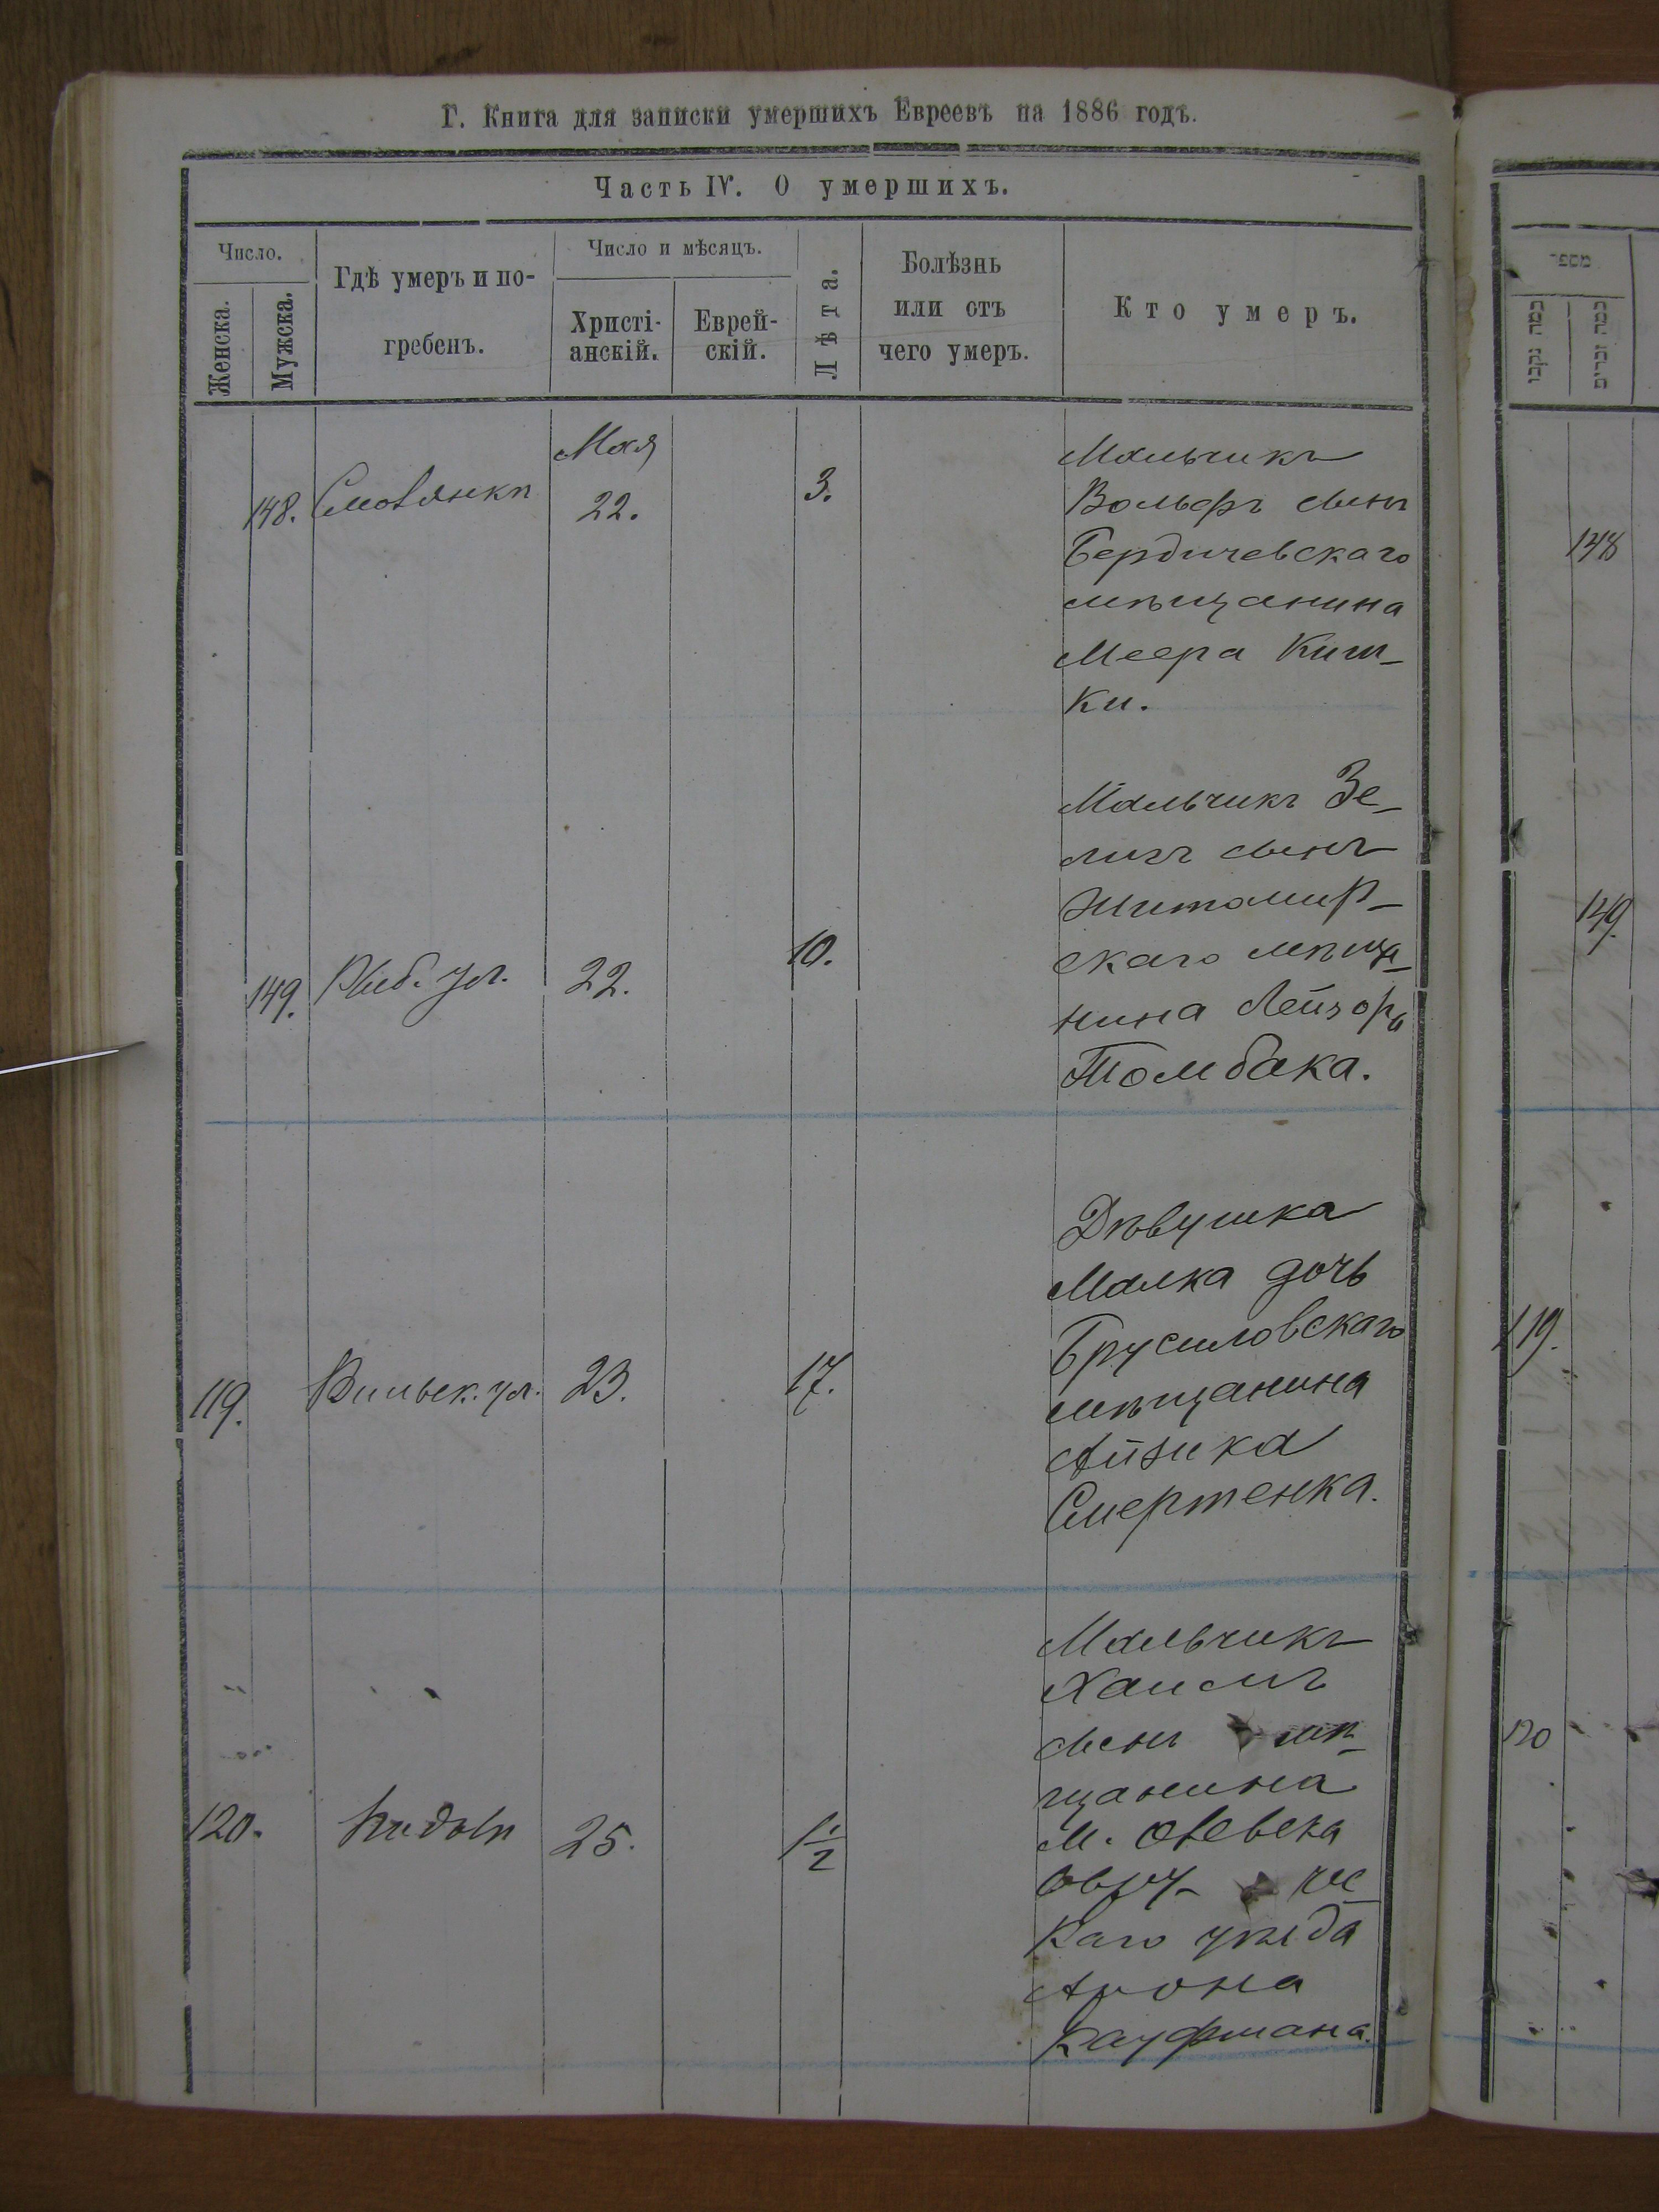 Г. Книга для записки умершихъ Евреевъ на 1886 годъ.
Часть IV. О умершихъ.
Число.
Женска.
Мужска.
Гдѣ умеръ и по-
гребенъ.
Число и мѣсяцъ.
Христі-
анскій.
Еврей-
скій.
Лѣта.
Болѣзнь
или отъ
чего умеръ.
Кто умеръ.
148.
Мая
22.
3.
Мальчикъ
Вольфъ сынъ
Бердичевскаго
мѣщанина
Меера Киш-
ки.
149.
Рыб. ул.
22.
10.
Мальчикъ Зе-
лигъ сынъ
Житомир-
скаго мѣща-
нина Лейзора
Томбака.
119.
Вильск. ул.
23.
17.
Дѣвушка
Малка дочь
Брусиловскаго
мѣщанина
Айзика
Смертенка.
120.
25.
1 1/2
Мальчикъ
Хаимъ
сынъ мѣ-
щанина
М. Олевска
Овруч-
каго уѣзда
Арона
Кауфмана.
מספר
148
149.
119.
120